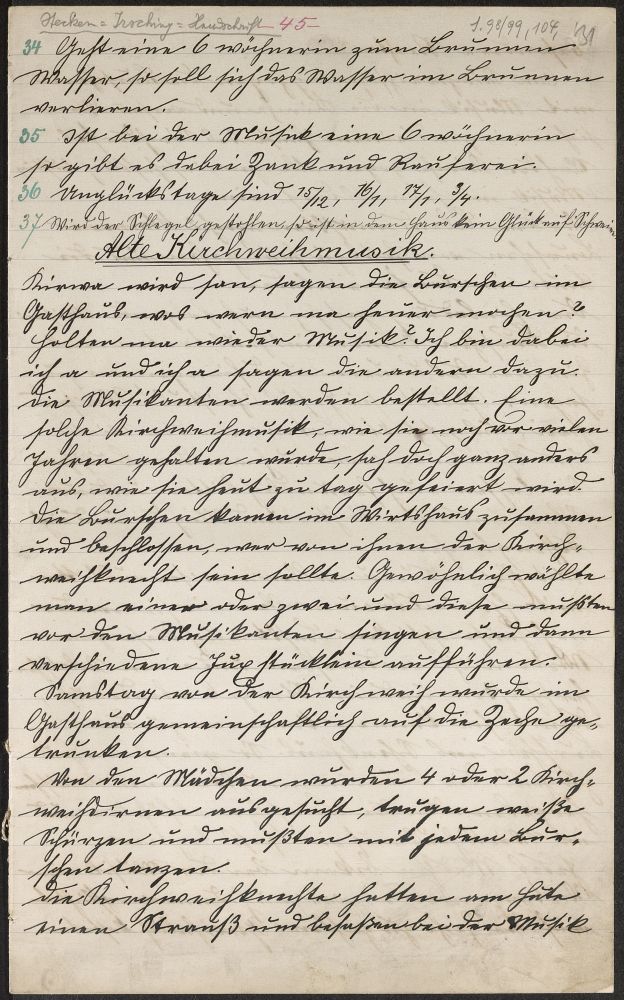 Stecken = Irsching = Handschrift 45
S. 98/99, 104, '31
34 Geht eine 6 wöchnerin zum Brunnen
Wasser, so soll sich das Wasser im Brunnen
verlieren.
35 Ist bei der Musick eine 6 wöchnerin
so gibt es dabei Zank und Rauferei.
36 Unglückstage sind 15/12, 16/1, 17/1, 3/4.
37 Wird der Schlegel gestohlen, so ist in dem Haus kein Glück auf Schweine
Alte Kirchweihmusik.
Kirwa wird san, sagen die Burschen im
Gasthaus, wos wern ma heuer machen?
Holten ma wieder Musik? Ich bin dabei
ich a und ich a sagen die andern dazu.
Die Musikanten werden bestellt. Eine
solche Kirchweihmusik, wie sie noch vor vielen
Jahren gehalten wurde, sah doch ganz anders
aus, wie sie heut zu tag gefeiert wird.
Die Burschen kamen im Wirtshaus zusammen
und beschlossen, wer von ihnen der Kirch-
weihknecht sein sollte. Gewöhnlich wählte
man einen oder zwei und diese mußten
vor den Musikanten singen und dann
verschiedene Juxstücklein aufführen.
Samstag von der Kirchweih wurde im
Gasthaus gemeinschaftlich auf die Zeche ge-
trunken.
Von den Mädchen wurden 4 oder 2 Kirch-
weihdirnen ausgesucht, trugen weiße
Schürzen und mußten mit jedem Bur-
schen tanzen.
Die Kirchweihknechte hatten am Hute
einen Strauß und besaßen bei der Musik